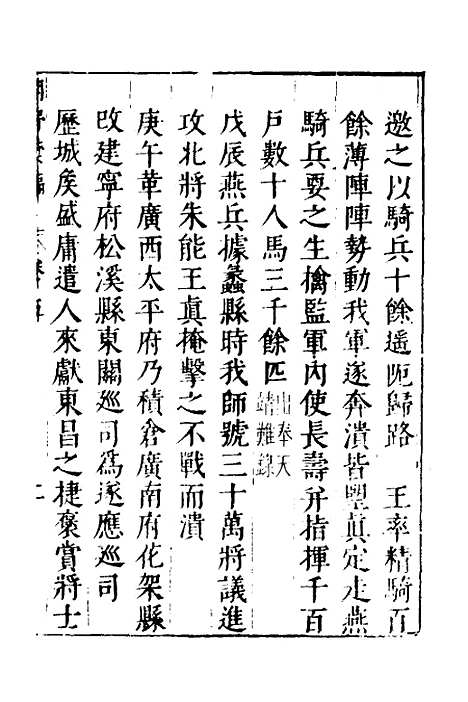 邀之以騎兵十餘遥阨歸路　王率精騎百
餘薄陣陣勢動我軍遂奔潰皆望眞定走燕
騎兵要之生擒監軍内使長壽并指揮千百
戶數十人馬三千餘匹出奉天靖難錄
戊辰燕兵據蠡縣時我師號三十萬將議進
攻北將朱能王眞掩擊之不戰而潰
庚午革廣西太平府乃積倉廣南府花架縣
改建寧府松溪縣東關巡司爲遂應巡司
歷城矦盛庸遣人來獻東昌之捷褒賞將士